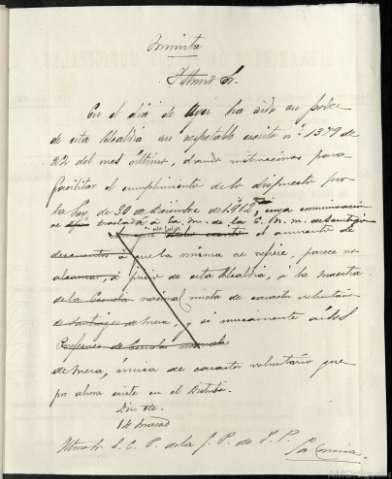 Minuta
Iltmo Sr.
En el dia de ayer ha sido en poder
de esta Alcaldia su respetable escrito n.º 1379 de
22 del mes último, dando instrucciones para
facilitar el cumplimiento de lo dispuesto por
la Ley de 30 de Diciembre de 1912, cuya comunicacion
se trasladó á la de la
el aumento de
descuentos á que la misma se refiere, parece no
alcanzar, á juicio de esta Alcaldia, á la maestra
de la Escuela nacional mixta de caracter voluntario
de Santiago de Mera, y si unicamente á los
Profesores de Escuela
de Mera, única de caracter voluntario que
por ahora existe en el Distrito.
Dios etc.
1º Marzo
Iltmo Sr. S. C. P. de la J. P. de I. P.
La Coruña.